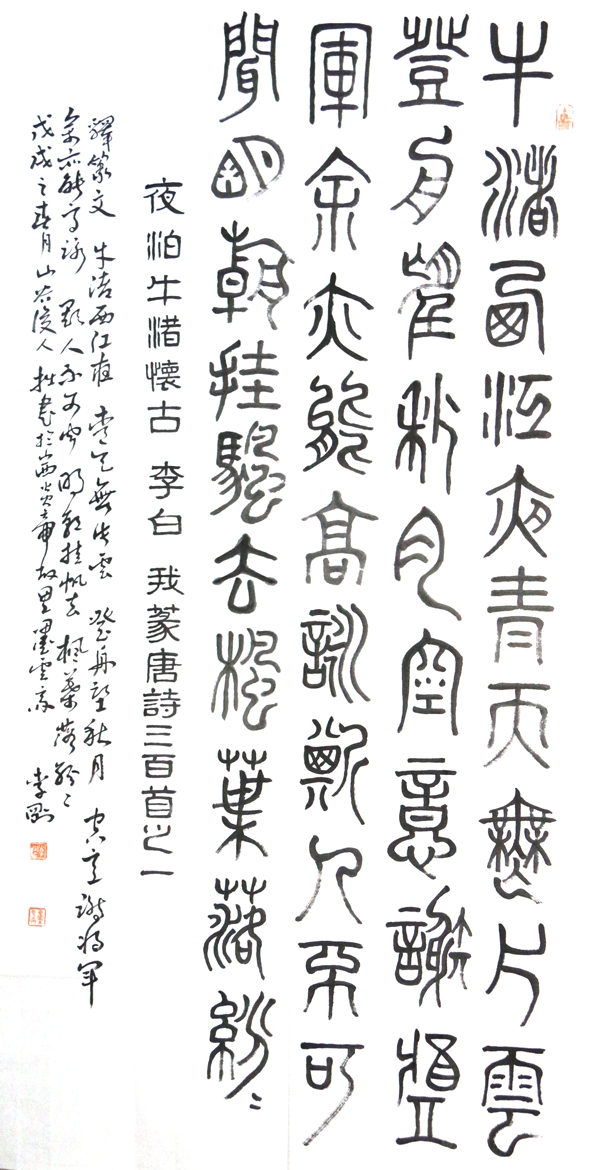 牛渚西江夜青天無片雲
登舟望秋月空意謝將
軍余亦能高詠斯人不可
聞明朝挂帆去楓葉落紛〻
夜泊牛渚懷古 李白 我篆唐詩三百首之一
釋篆文 牛渚西江夜 青天無片雲 登舟望秋月 空意謝將軍
余亦能高詠 斯人不可聞 明朝挂帆去 楓葉落紛〻
戊戌之春月山谷後人拙書於山西炎帝故里墨雲齋 李剛